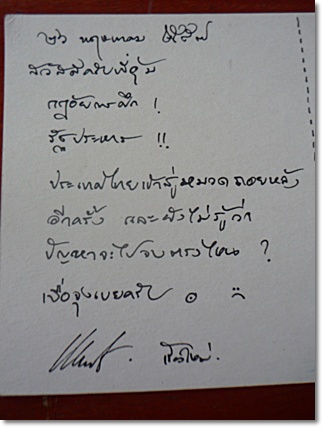 ๒๖ พฤษภาคม ๒๕๕๗
สวัสดีครับพี่ตุ้ม
กฎอัยการศึก !
รัฐประหาร !!
ประเทศไทยเข้าสู่หมวดถอยหลัง
อีกครั้ง และยังไม่รู้ว่า
ปัญหาจะไปจบตรงไหน ?
เบื่อจุงเบยครับ
เชียงใหม่.